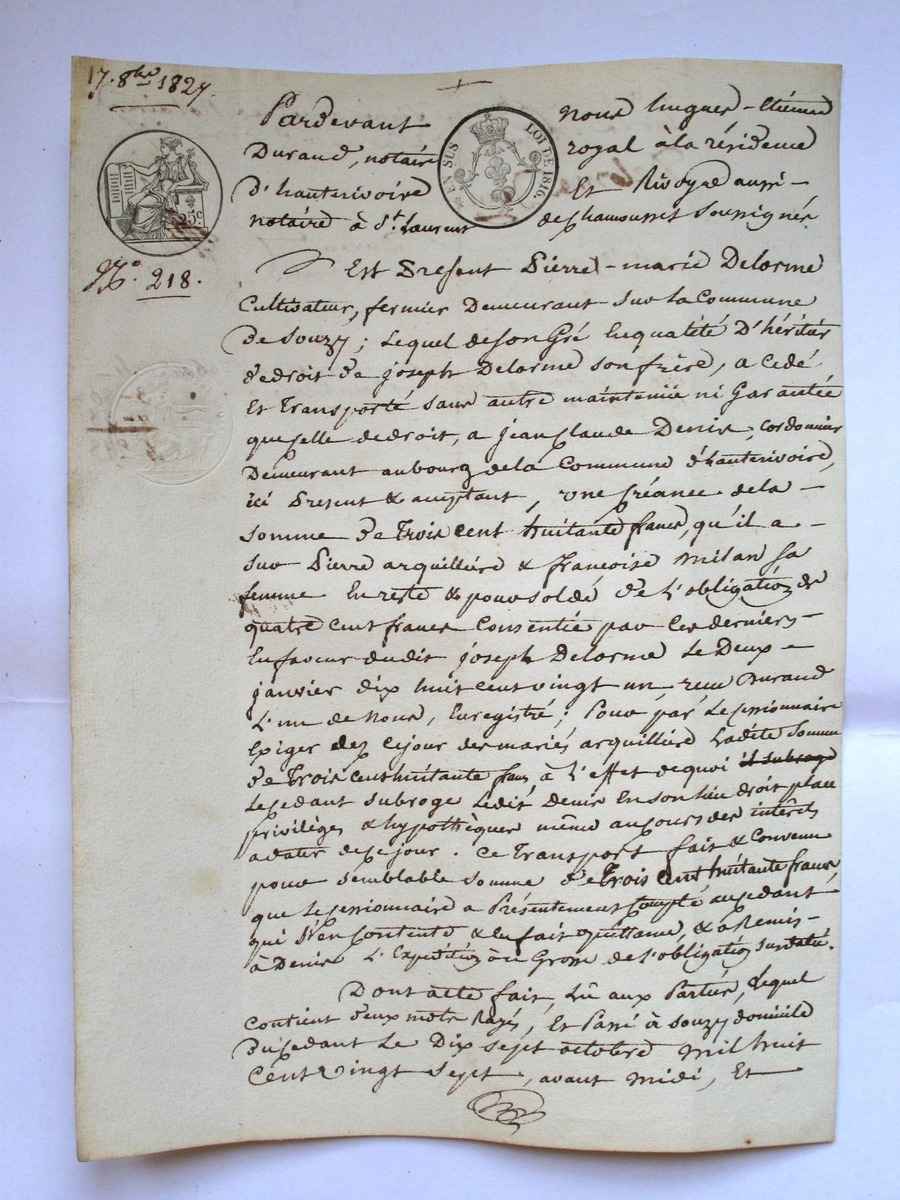 17. 8bre 1827.
Pardevant nous hugues-Etienne
Durand, notaire royal à la résidence
d'hauterivoire Et Rivoyre aussi-
notaire à St. Laurent de Chamousset soussignés
EN SUS
LOI DE 1816.
25c
No. 218.
Est Present Pierre-marie Delorme
Cultivateur, fermier Demeurant sur la Commune
de Souzy; Lequel de son Gré En qualité D'héritier
de droit de joseph Delorme son frère, a Cedé
Et Transporté sans autre maintenüe ni Garantée
que celle de droit, a jean Claude Denis, cordonnier
Demeurant au bourg de la Commune d'hauterivoire,
ici Present & acceptant, une Créance de la-
somme de Trois cent huitante francs, qu'il a-
sur Pierre arquilliere & francoise milan sa
femme En reste & pour solde de L'obligation de
quatre cent francs Consentie par Ces derniers-
En faveur dudit joseph Delorme Le Deux-
janvier dix huit cent vingt un, reçu Durand
L'un de Nous, Enregistré; Pour par Le Cessionnaire
Exiger dez cejour des mariés arquilliere Ladite Somme
de Trois cent huitante francs à L'effet de quoi il subroge
Le Cedant subroge Ledit Denis En son lieu droit place
privilèges & hypothèques même au cours des intérêts
a dater de ce jour. Ce Transport fait & Convenu
pour semblable somme de Trois Cent huitante francs
que Le Cessionnaire a Présentement Compté au Cedant
qui s'en Contente & en fait quittance, & a Remis-
à Denis L'Expedition en Grosse de L'obligation susdatée.
Dont acte fait, Lû aux Parties, Lequel
Contient deux mots Rayés, Et Passé à Souzy domicile
du Cedant Le Dix sept octobre mil huit
Cent Vingt Sept, avant midi, Et